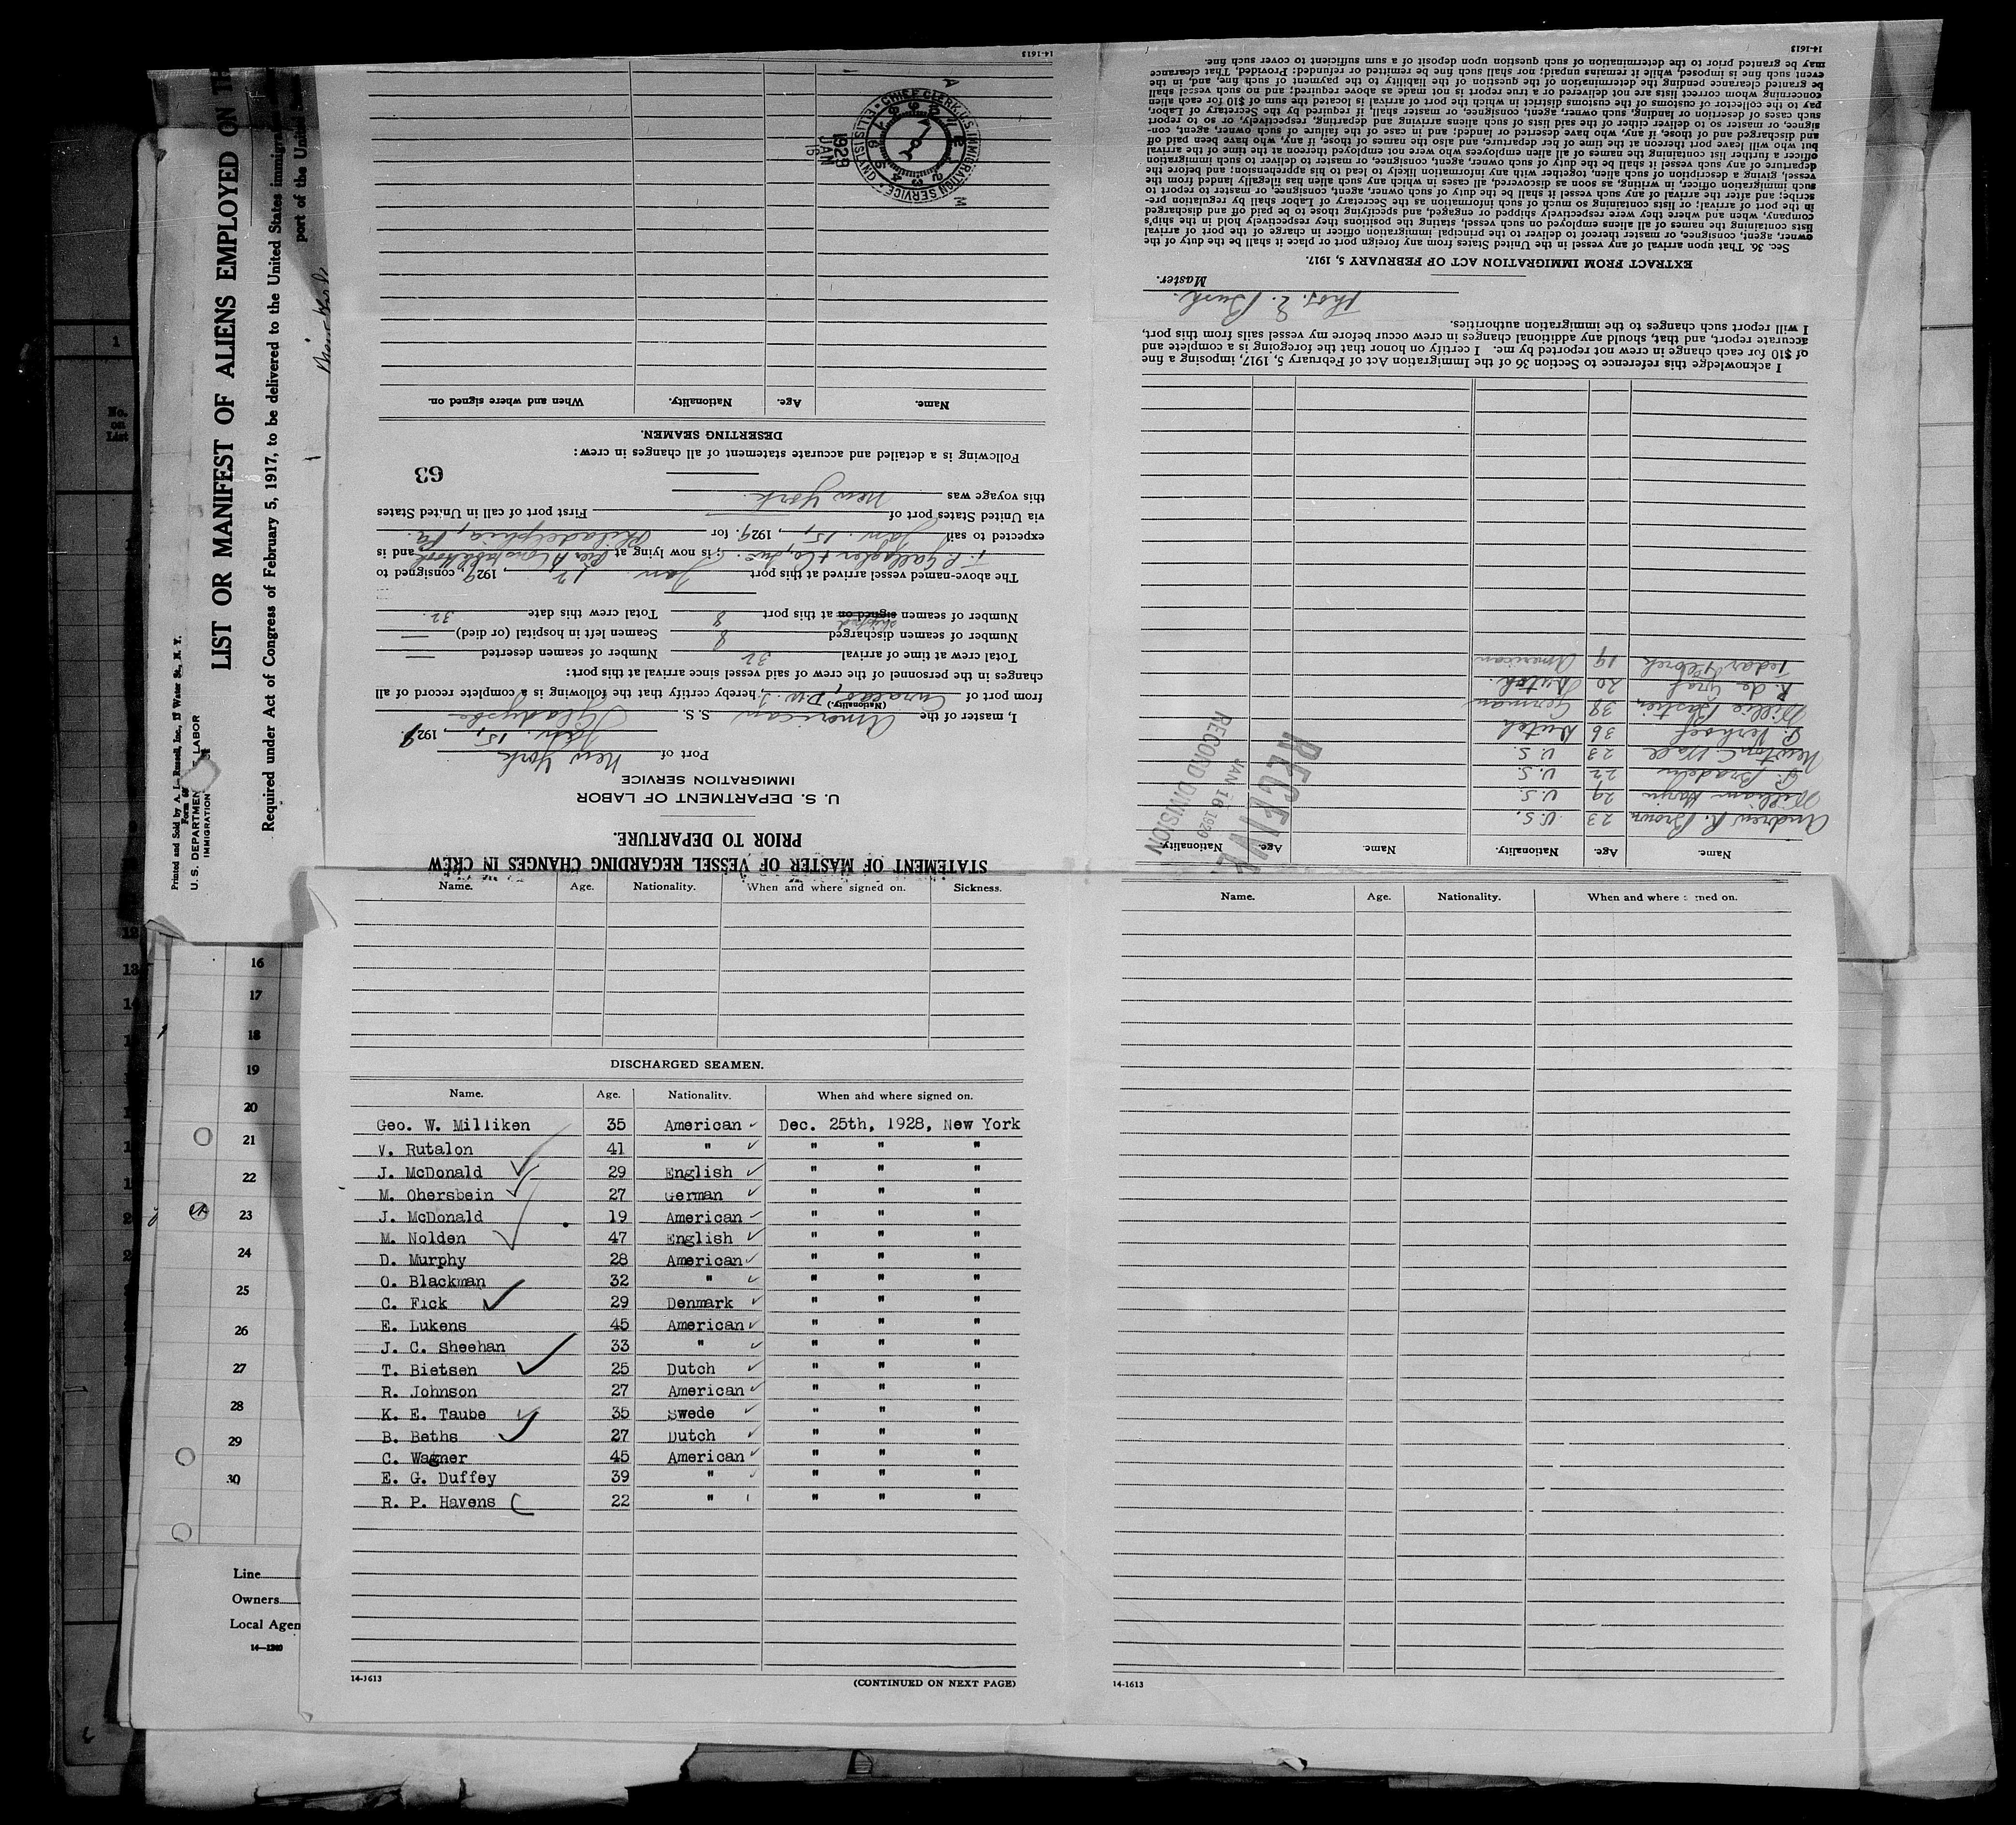 14-1613
LIST OR MANIFEST OF ALIENS EMPLOYED ON TH
Required under Act of Congress of February 5, 1917, to be delivered to the United States immigra
port of the United
Printed and Sold by A. L. Russell, Inc., 17 Water St., N. Y.
U. S. DEPARTMEN LABOR
IMMIGRATION
1
No.
on
List
STATEMENT OF MASTER OF VESSEL REGARDING CHANGES IN CREW
PRIOR TO DEPARTURE.
U. S. DEPARTMENT OF LABOR
IMMIGRATION SERVICE
Port of New York
Jan. 15, 1929.
I, master of the American S. S. Gladysbe
(Nationality.)
from port of Curacao, D.W.I., hereby certify that the following is a complete record of all
changes in the personnel of the crew of said vessel since arrival at this port:
Total crew at time of arrival 32 Number of seamen deserted —
Number of seamen discharged 8 Seamen left in hospital (or died) —
Number of seamen signed on shipped at this port 8 Total crew this date 32.
The above-named vessel arrived at this port Jan 12, 1929, consigned to
F. P. Gallagher & Co, Inc.; is now lying at Pier and is
expected to sail Jan. 15, 1929. for Philadelphia, Pa.
via United States port of First port of call in United States
this voyage was New York.
63
Following is a detailed and accurate statement of all changes in crew:
DESERTING SEAMEN.
Name. Age. Nationality. When and where signed on.
CHIEF CLERK, U.S. IMMIGRATION SERVICE
1929 JAN 16
14-1613
Name. Age. Nationality. Name. Age. Nationality.
Andrew R. Brown 23 U.S.
William 29 U.S.
22 U.S.
Newton C. 23 U.S.
P. Verhoef 36 Dutch
Willie 38 German
R. de Graf 20 Dutch
19 American
RECEIVE
JAN 16 1929
RECORD DIVISION
I acknowledge this reference to Section 36 of the Immigration Act of February 5, 1917, imposing a fine
of $10 for each change in crew not reported by me. I certify on honor that the foregoing is a complete and
accurate report, and that, should any additional changes in crew occur before my vessel sails from this port,
I will report such changes to the immigration authorities.
Thos. E. Bush.
Master.
EXTRACT FROM IMMIGRATION ACT OF FEBRUARY 5, 1917.
Sec. 36. That upon arrival of any vessel in the United States from any foreign port or place it shall be the duty of the
owner, agent, consignee, or master thereof to deliver to the principal immigration officer in charge of the port of arrival
lists containing the names of all aliens employed on such vessel, stating the positions they respectively hold in the ship's
company, when and where they were respectively shipped or engaged, and specifying those to be paid off and discharged
in the port of arrival; or lists containing so much of such information as the Secretary of Labor shall by regulation pre-
scribe; and after the arrival of any such vessel it shall be the duty of such owner, agent, consignee, or master to report to
such immigration officer, in writing, as soon as discovered, all cases in which any such alien has illegally landed from the
vessel, giving a description of such alien, together with any information likely to lead to his apprehension; and before the
departure of any such vessel it shall be the duty of such owner, agent, consignee, or master to deliver to such immigration
officer a further list containing the names of all alien employees who were not employed thereon at the time of the arrival
but who will leave port thereon at the time of her departure, and also the names of those, if any, who have been paid off
and discharged and of those, if any, who have deserted or landed; and in case of the failure of such owner, agent, con-
signee, or master so to deliver either of the said lists of such aliens arriving and departing, respectively, or so to report
such cases of desertion or landing, such owner, agent, consignee, or master shall, if required by the Secretary of Labor,
pay to the collector of customs of the customs district in which the port of arrival is located the sum of $10 for each alien
concerning whom correct lists are not delivered or a true report is not made as above required; and no such vessel shall
be granted clearance pending the determination of the question of the liability to the payment of such fine, and, in the
event such fine is imposed, while it remains unpaid; nor shall such fine be remitted or refunded: Provided, That clearance
may be granted prior to the determination of such question upon deposit of a sum sufficient to cover such fine.
14-1613
Name. Age. Nationality. When and where signed on. Sickness.
DISCHARGED SEAMEN.
Name. Age. Nationality. When and where signed on.
Geo. W. Milliken 35 American Dec. 25th, 1928, New York
V. Rutalon 41 " " " "
J. McDonald 29 English " " "
M. Ohersbein 27 German " " "
J. McDonald 19 American " " "
M. Nolden 47 English " " "
D. Murphy 28 American " " "
O. Blackman 32 " " " "
C. Fick 29 Denmark " " "
E. Lukens 45 American " " "
J. C. Sheehan 33 " " " "
T. Bietsen 25 Dutch " " "
R. Johnson 27 American " " "
K. E. Taube 35 Swede " " "
B. Beths 27 Dutch " " "
C. Wagner 45 American " " "
E. G. Duffey 39 " " " "
R. P. Havens 22 " " " "
14-1613
(CONTINUED ON NEXT PAGE)
Name. Age. Nationality. When and where
14-1613
16
17
18
19
20
21
22
23
24
25
26
27
28
29
30
Line
Owners
Local Agen
14—1240